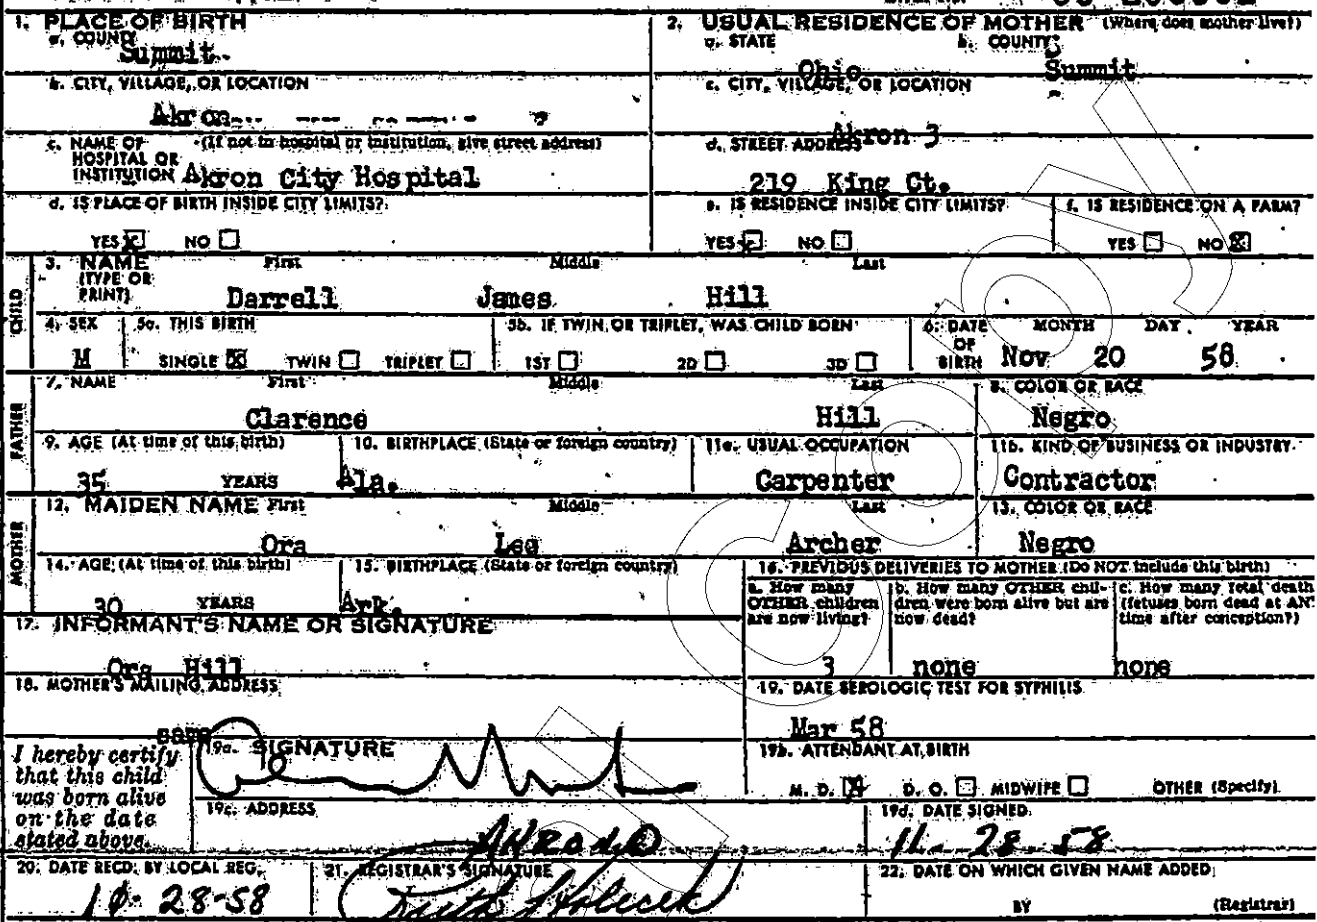 1. PLACE OF BIRTH
a. COUNTY
Summit
b. CITY, VILLAGE, OR LOCATION
Akron
c. NAME OF HOSPITAL OR INSTITUTION (If not in hospital or institution, give street address)
Akron City Hospital
d. IS PLACE OF BIRTH INSIDE CITY LIMITS?
YES NO
2. USUAL RESIDENCE OF MOTHER (Where does mother live?)
a. STATE b. COUNTY
Ohio Summit
c. CITY, VILLAGE, OR LOCATION
Akron 3
d. STREET ADDRESS
219 King Ct.
e. IS RESIDENCE INSIDE CITY LIMITS? f. IS RESIDENCE ON A FARM?
YES NO YES NO
CHILD
3. NAME (TYPE OR PRINT) First Middle Last
Darrell James Hill
4. SEX 5a. THIS BIRTH 5b. IF TWIN OR TRIPLET, WAS CHILD BORN 6. DATE OF BIRTH MONTH DAY YEAR
M SINGLE TWIN TRIPLET 1ST 2D 3D Nov 20 58
FATHER
7. NAME First Middle Last 8. COLOR OR RACE
Clarence Hill Negro
9. AGE (At time of this birth) 10. BIRTHPLACE (State or foreign country) 11a. USUAL OCCUPATION 11b. KIND OF BUSINESS OR INDUSTRY
35 YEARS Ala. Carpenter Contractor
MOTHER
12. MAIDEN NAME First Middle Last 13. COLOR OR RACE
Ora Lee Archer Negro
14. AGE (At time of this birth) 15. BIRTHPLACE (State or foreign country)
30 YEARS Ark.
16. PREVIOUS DELIVERIES TO MOTHER (Do NOT include this birth)
a. How many OTHER children are now living?
3
b. How many OTHER children were born alive but are now dead?
none
c. How many fetal death (fetuses born dead at AN time after conception?)
none
17. INFORMANT'S NAME OR SIGNATURE
Ora Hill
18. MOTHER'S MAILING ADDRESS
same
19. DATE SEROLOGIC TEST FOR SYPHILIS
Mar 58
I hereby certify
that this child
was born alive
on the date
stated above.
19a. SIGNATURE
19b. ATTENDANT AT BIRTH
M. D. D. O. MIDWIFE OTHER (Specify)
19c. ADDRESS
19d. DATE SIGNED
11-28-58
20. DATE RECD. BY LOCAL REG. 21. REGISTRAR'S SIGNATURE 22. DATE ON WHICH GIVEN NAME ADDED
28-58
BY (Registrar)
COPY